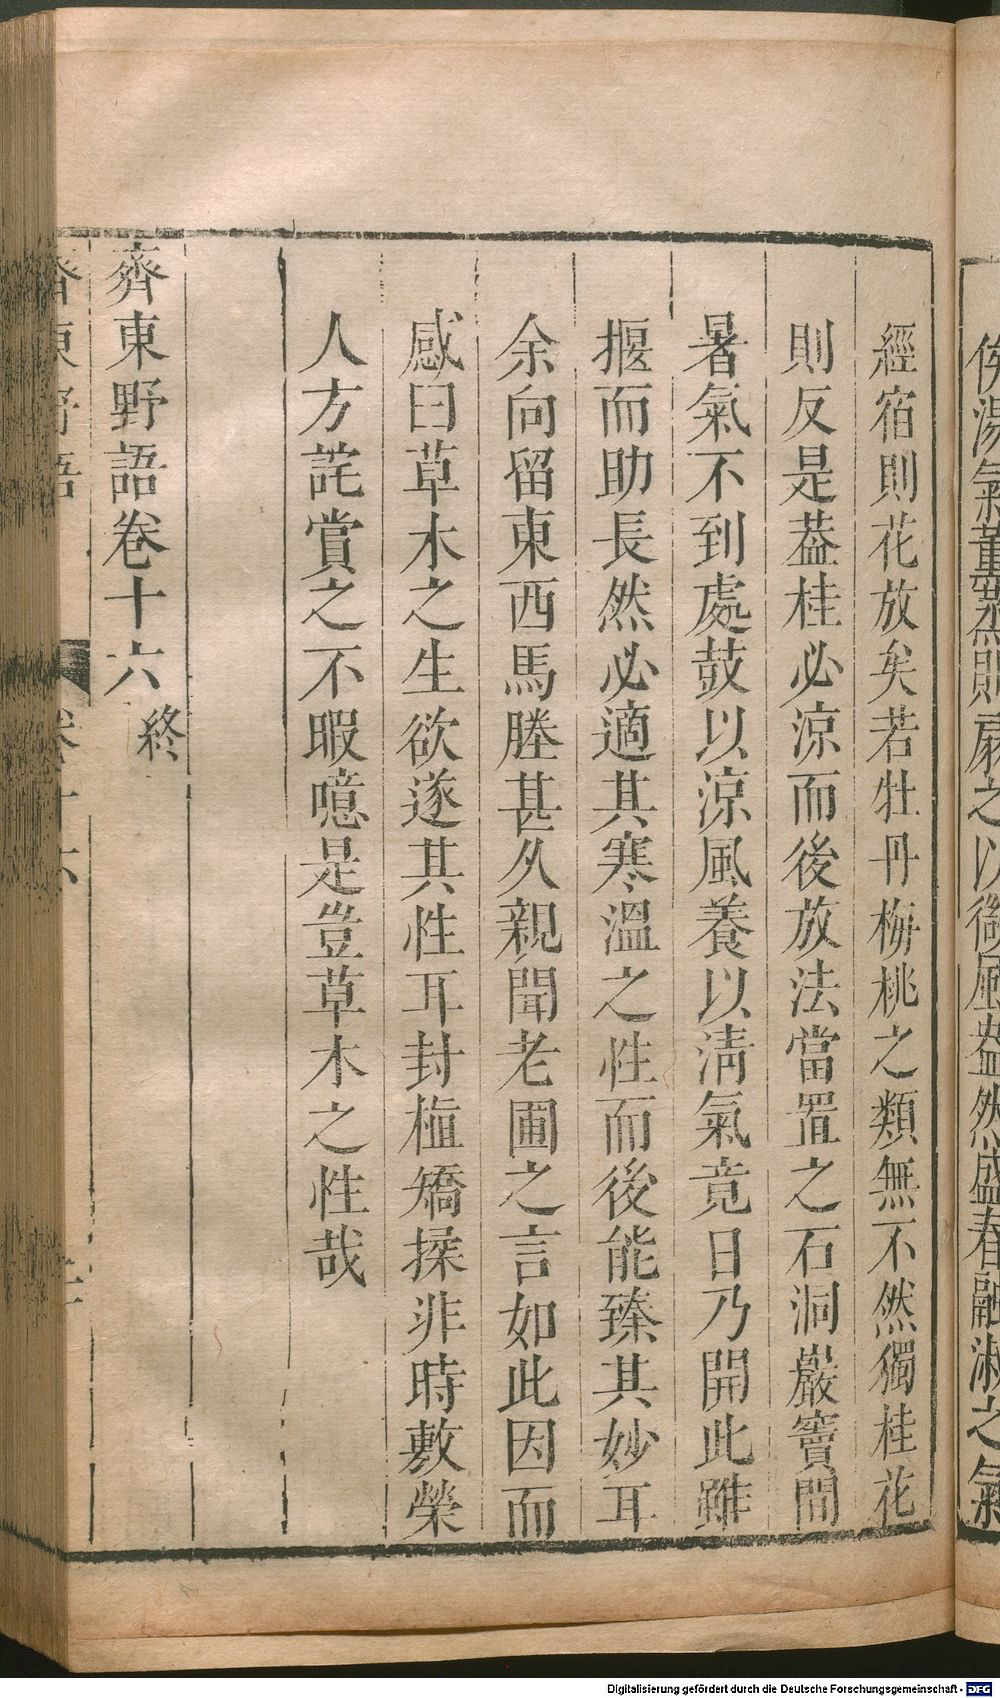 侯湯氣薰蒸則扇之以微風盎然盛春融淑之氣
經宿則花放矣若牡丹梅桃之類無不然獨桂花
則反是葢桂必涼而後放法當置之石洞巖竇間
暑氣不到處鼓以涼風養以淸氣竟日乃開此雖
揠而助長然必適其寒溫之性而後能臻其妙耳
余向留東西馬塍甚久親聞老圃之言如此因而
感曰草木之生欲遂其性耳封植矯揉非時敷榮
人方詫賞之不暇噫是豈草木之性哉
齊東野語卷十六 終
齊東野語 卷十六
Digitalisierung gefördert durch die Deutsche Forschungsgemeinschaft - DFG